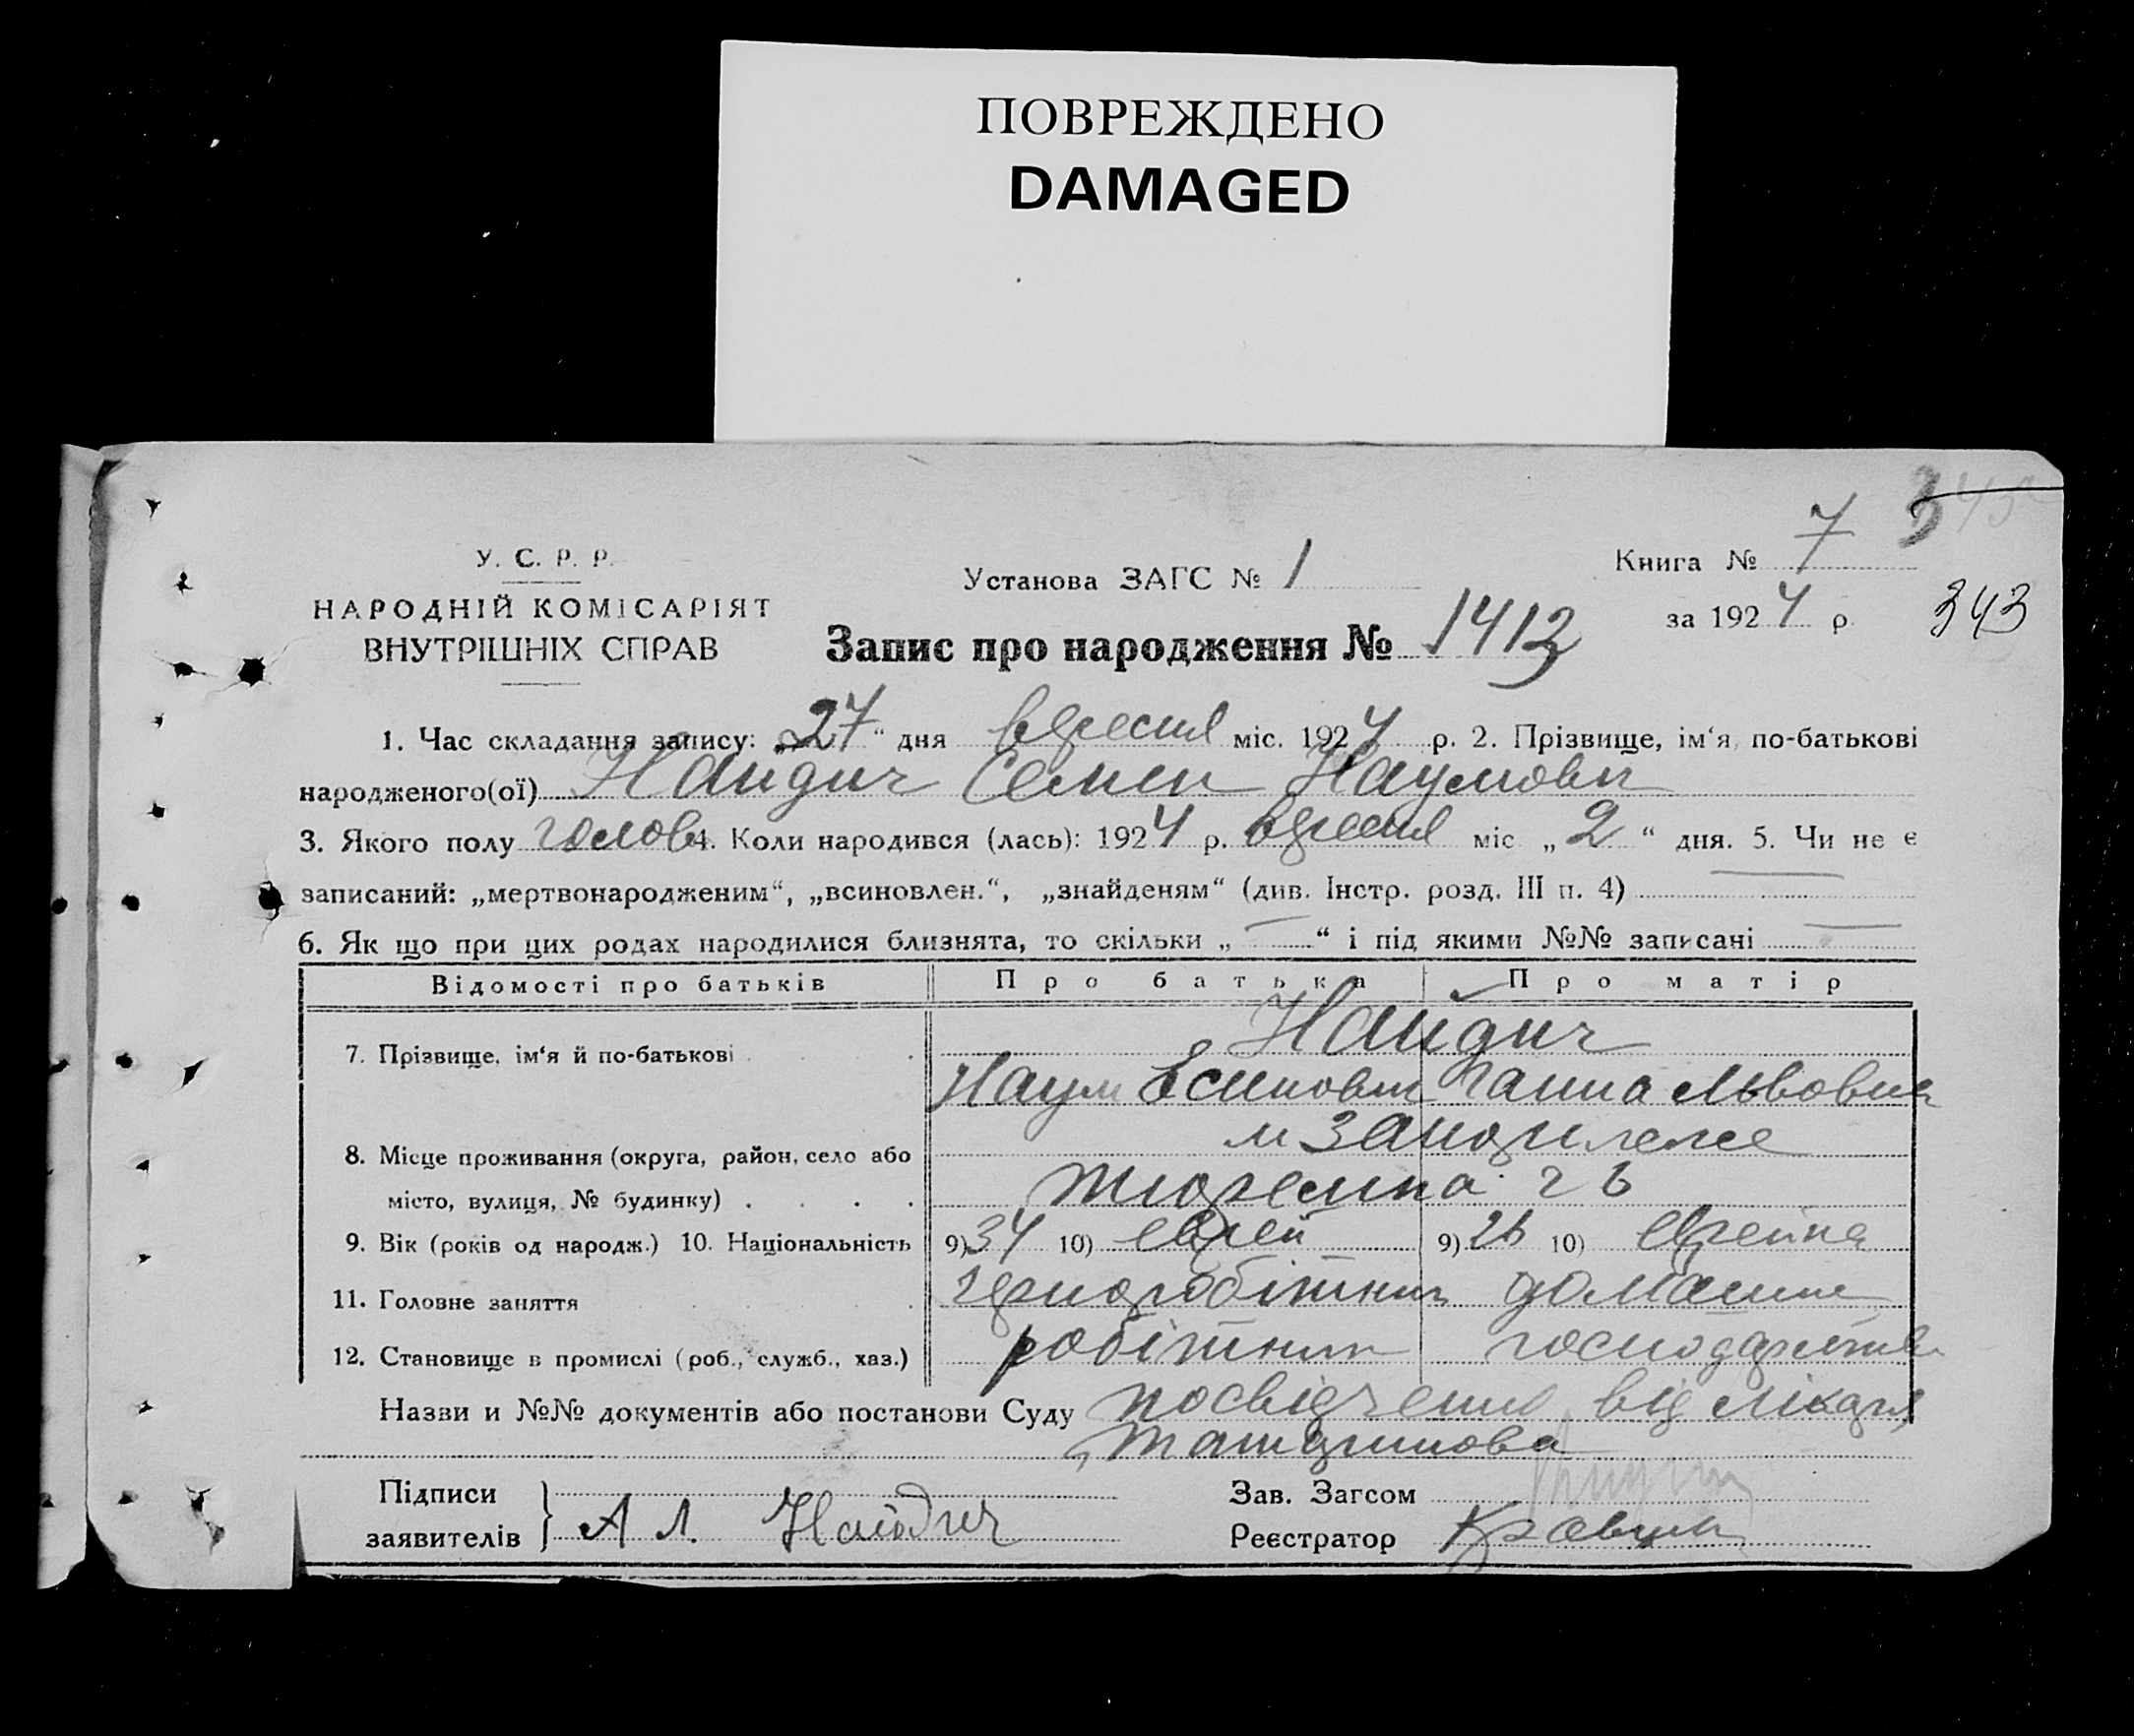 ПОВРЕЖДЕНО
DAMAGED
343
У. С. Р. Р.
НАРОДНІЙ КОМІСАРІЯТ
ВНУТРІШНІХ СПРАВ
Установа ЗАГС № 1
Книга № 7
за 1924 р.
343
Запис про народження № 1413
1. Час складання запису: „27“ дня вересня міс. 1924 р. 2. Прізвище, ім‘я, по-батькові
народженого(ої) Найдич Семен Наумович
3. Якого полу чолов 4. Коли народився (лась): 1924 р. вересня міс „2“ дня. 5. Чи не є
записаний: „мертвонародженим“, „всиновлен.“, „знайденям“ (див. Інстр. розд. III п. 4) —
6. Як що при цих родах народилися близнята, то скільки „—“ і під якими №№ записані —
Відомості про батьків Про батька Про матір
7. Прізвище, ім‘я й по-батькові Найдич
Наум Ганна Львовна
8. Місце проживання (округа, район, село або
місто, вулиця, № будинку) 26
9. Вік (років од народж.) 10. Національність 9) 34 10) еврей 9) 26 10) еврейка
11. Головне заняття черноробітник домашнє
12. Становище в промислі (роб., служб., хаз.) робітник господарство
Назви и №№ документів або постанови Суду посвідчення від лікаря
Підписи
заявителів } А Л. Найдич
Зав. Загсом
Реєстратор